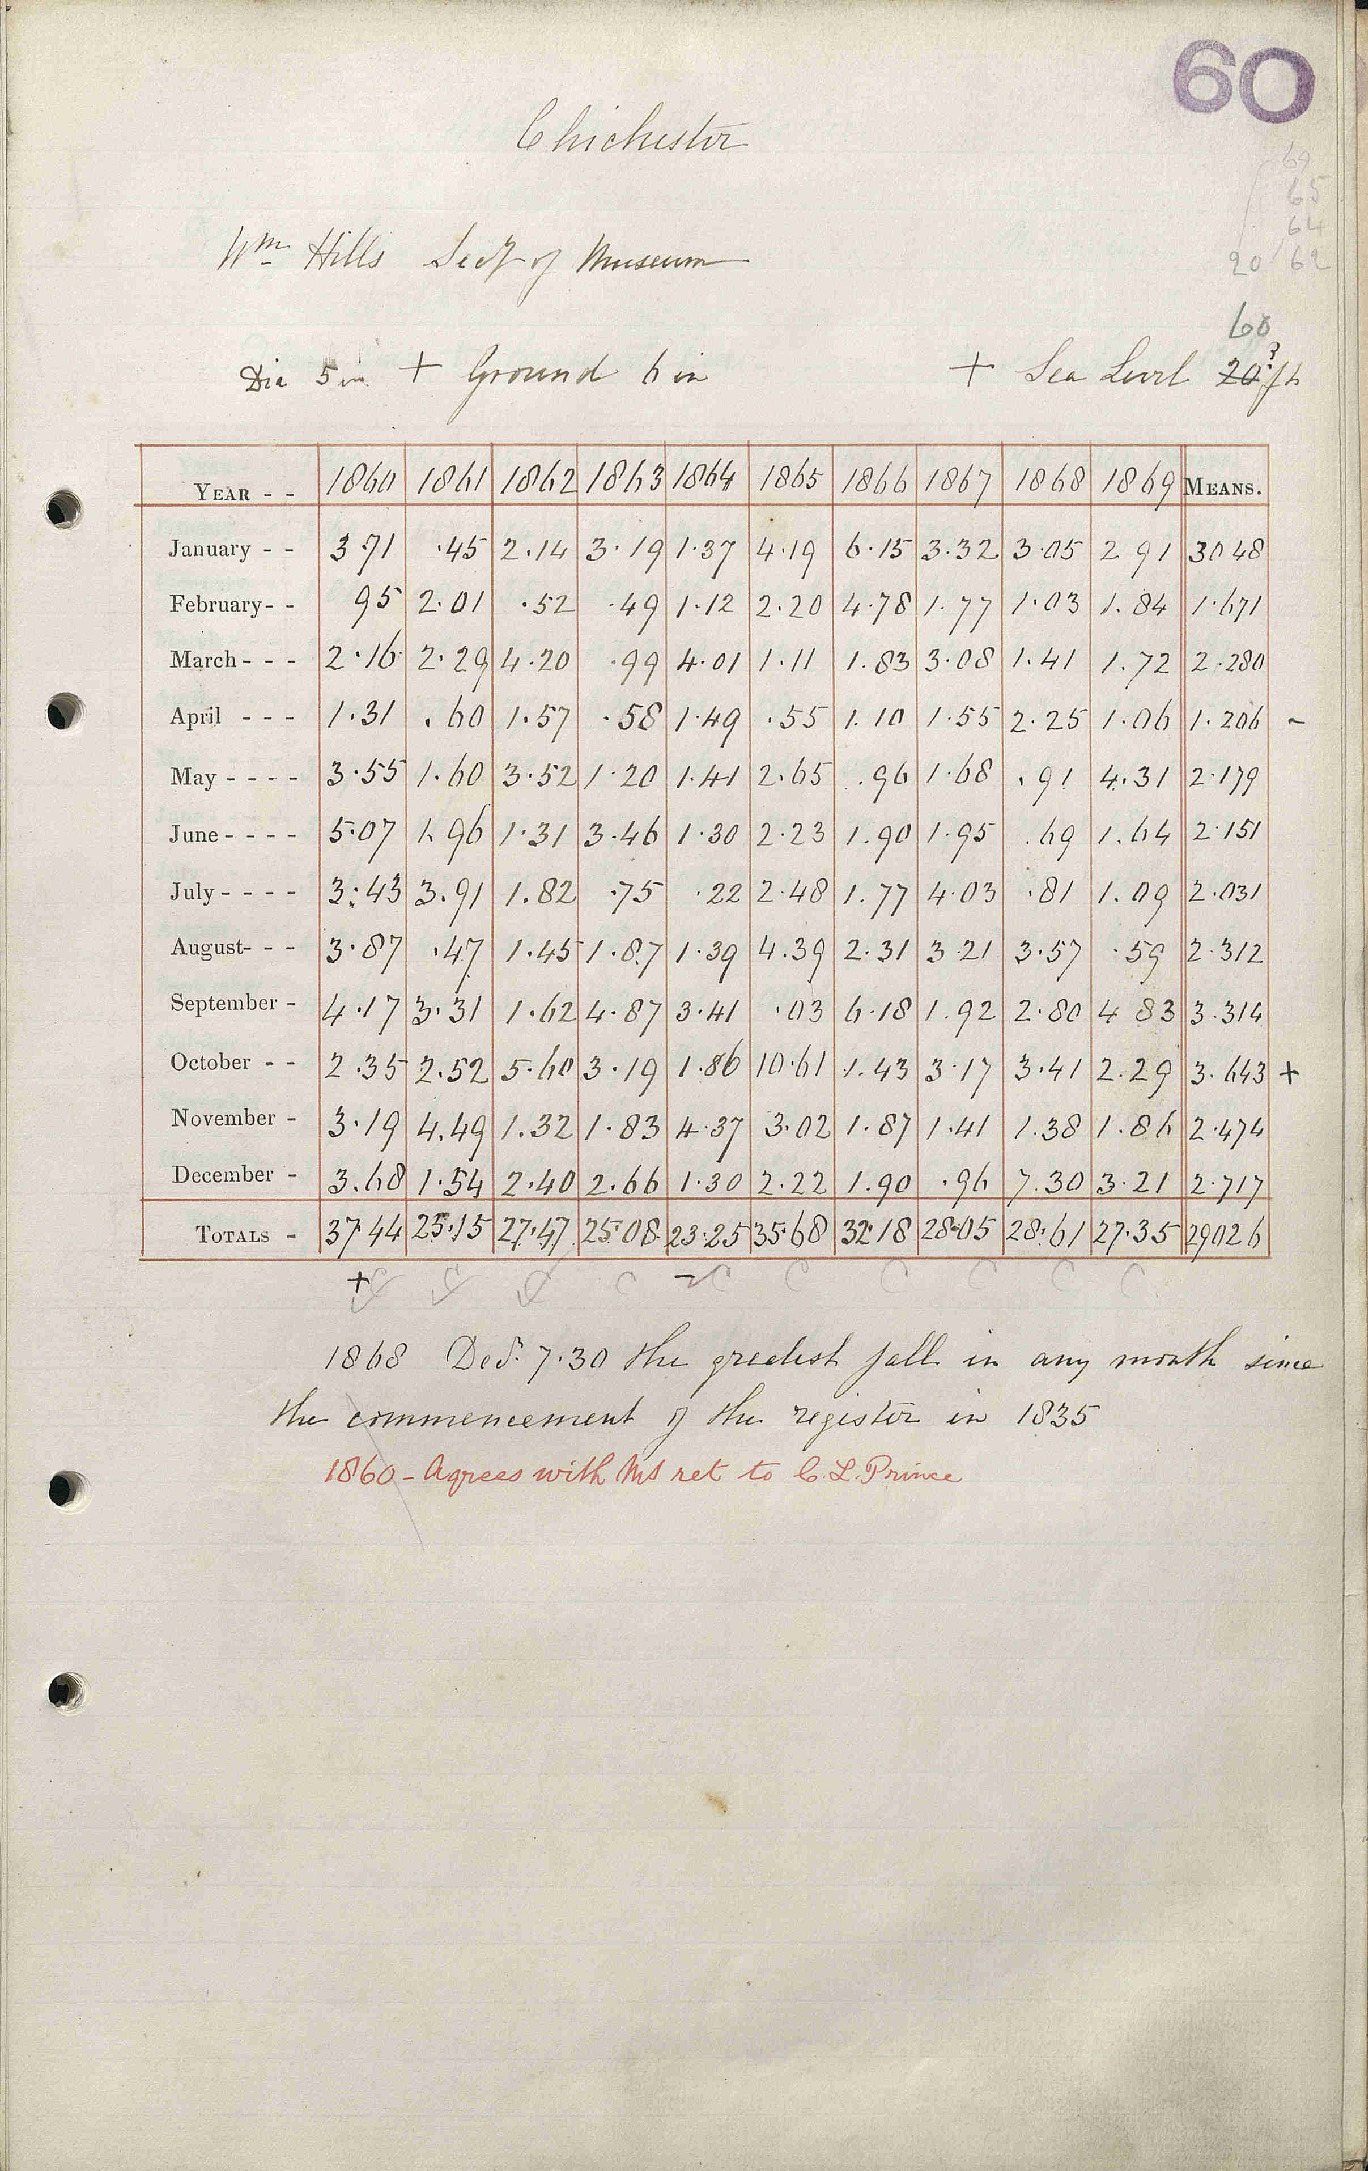 60
Chichester
69
65
64
20 62
Wm Hills Secy of Museum
60
Dia 5 in + Ground 6 in + Sea Level 20? ft
YEAR - - 1860 1861 1862 1863 1864 1865 1866 1867 1868 1869 MEANS.
January - - 3.71 .45 2.14 3.19 1.37 4.19 6.15 3.32 3.05 2 91 3048
February- - 95 2.01 .52 .49 1.12 2.20 4.78 1.77 1.03 1.84 1.671
March- - - 2.16 2.29 4.20 .99 4.01 1.11 1.83 3.08 1.41 1.72 2.280
April - - - 1.31 .60 1.57 .58 1.49 .55 1.10 1.55 2.25 1.06 1.206 -
May - - - - 3.55 1.60 3.52 1.20 1.41 2.65 .96 1.68 .91 4.31 2.179
June- - - - 5.07 1.96 1.31 3.46 1.30 2.23 1.90 1.95 .69 1.64 2.151
July- - - - 3.43 3.91 1.82 .75 .22 2.48 1.77 4.03 .81 1.09 2.031
August- - - 3.87 .47 1.45 1.87 1.39 4.39 2.31 3.21 3.57 .59 2.312
September - 4.17 3.31 1.62 4.87 3.41 .03 6.18 1.92 2.80 4 83 3.314
October - - 2.35 2.52 5.60 3.19 1.86 10.61 1.43 3.17 3.41 2.29 3.643 +
November - 3.19 4.49 1.32 1.83 4.37 3.02 1.87 1.41 1.38 1.86 2.474
December - 3.68 1.54 2.40 2.66 1.30 2.22 1.90 .96 7.30 3.21 2.717
TOTALS - 37.44 25.15 27.47 25.08 23.25 35.68 32.18 28.05 28.61 27.35 29026
+ C C C C - C C C C C C
1868 Decr. 7.30 the greatest fall in any month since
the commencement of the register in 1835
1860 - Agrees with MS ret to C. L. Prince